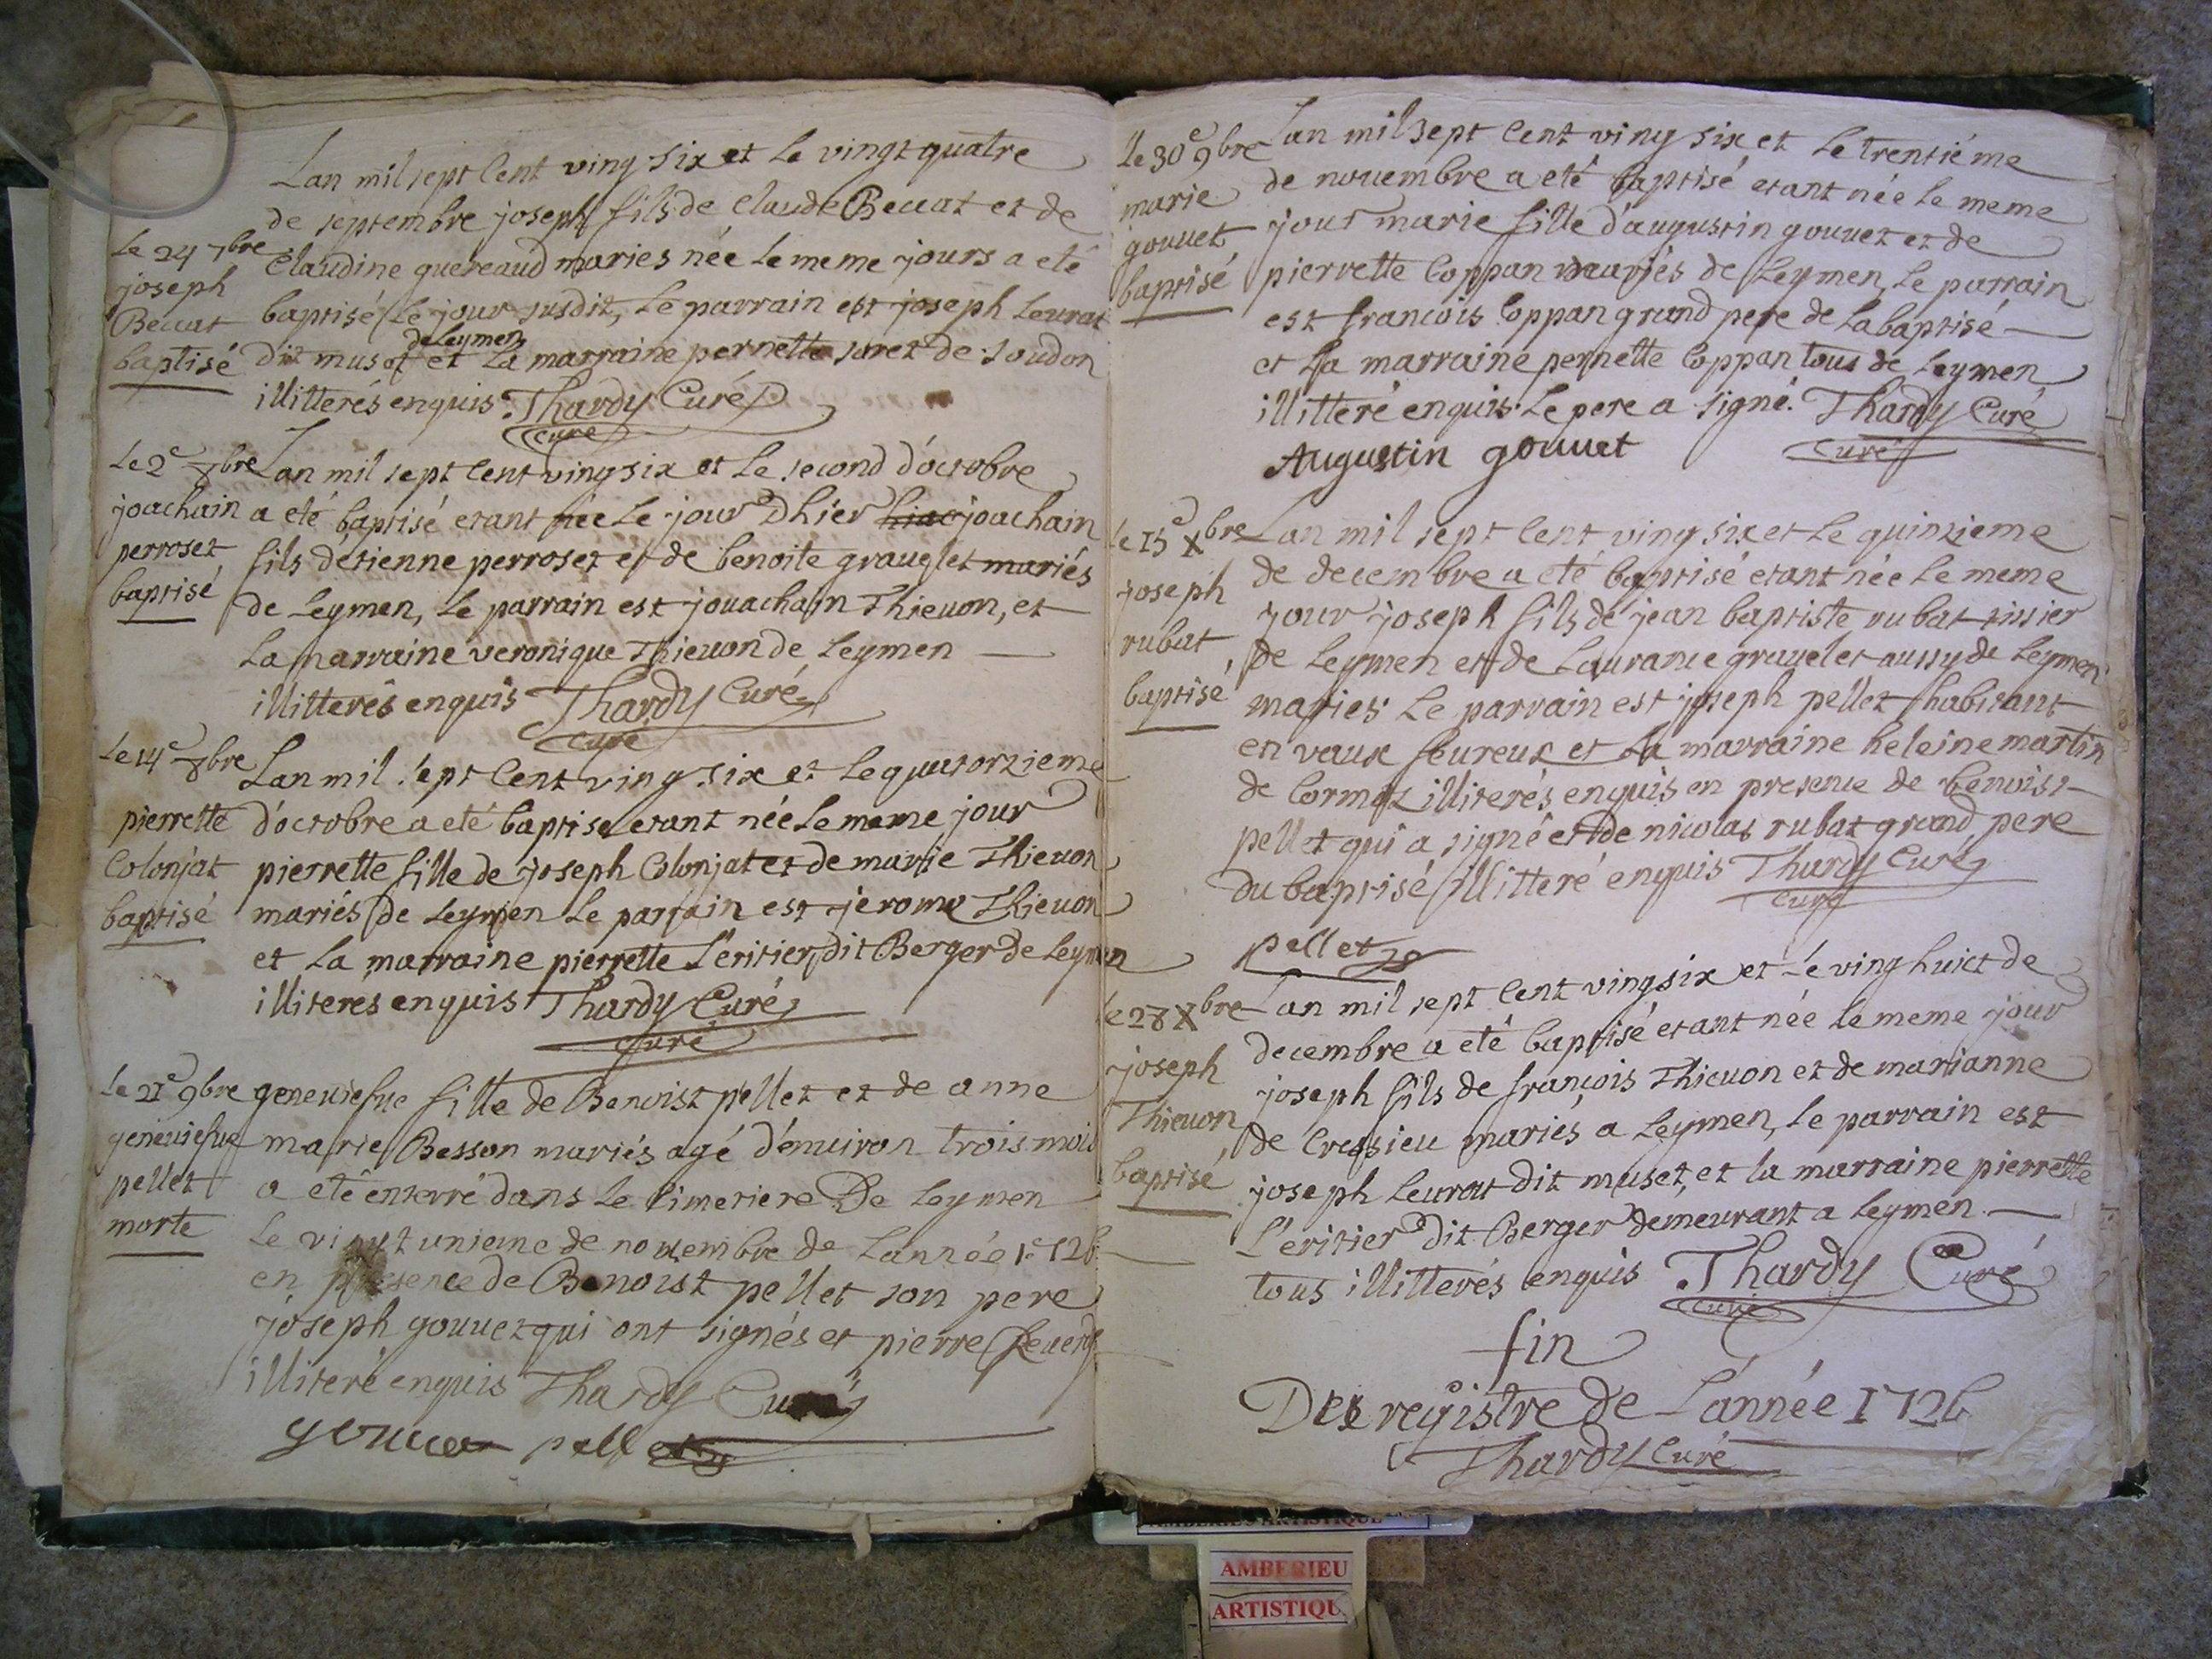 Lan mil sept Cent ving six et le vingt quatre
de septembre joseph fils de Claude Beccat et de
le 24 7bre
joseph
Beccat
baptisé
Claudine quereaud maries née le meme jours a eté
baptisé le jour susdit, le parrain est joseph Leurat
de Leymen
dit muset et La marraine pernette soret de soudon
illitterés enquis Thardy Curé
curé
le 2e 8bre
joachain
perroset
baptisé
Lan mil sept Cent ving six et le second d'octobre
a eté baptisé etant née le jour Dhier joachain
fils détienne perroset et de benoite grauelet mariés
de Leymen, le parrain est jouachain Thieuon, et
La marraine veronique Thieuon de Leymen
illitterés enquis Thardy Curé
curé
le 14e 8bre
pierrette
Colonjat
baptisé
Lan mil sept Cent ving six et le quatorzieme
d'octobre a eté baptise etant née le meme jour
pierrette fille de joseph Colonjat et de marie Thieuon
mariés de Leymen le parrain est jerome Thieuon
et La marraine pierrette L'eritier dit Berger de Leymen
illiteres enquis Thardy Curé
curé
le 21e 9bre
geneuiefue
pellet
morte
geneuiefue fille de Benoist pellet et de anne
marie Besson mariés agé d'enuiron trois mois
a eté enterré dans le Cimetiere De Leymen
le vingt unieme de nouembre de Lannée 1726
en presence de Benoist pellet son pere
joseph gouuet qui ont signés et pierre
illiteré enquis Thardy Curé
gouuet pellet
le 30e 9bre
marie
gouuet
baptisé
Lan mil sept Cent ving six et le trentiéme
de nouembre a eté baptisé etant née le meme
jour marie fille d'augustin gouuet et de
pierrette Coppan mariés de Leymen, le parrain
est francois Coppan grand pere de La baptisé
et La marraine pernette Coppan tous de Leymen
illitteré enquis. Le pere a signé. Thardy Curé
Augustin gouuet curé
le 15e Xbre
joseph
rubat
baptisé
Lan mil sept Cent ving six et le quinzieme
de decembre a eté baptisé etant née le meme
jour joseph fils de jean baptiste rubat tissier
de Leymen et de Laurance grauelet aussy de Leymen
maries Le parrain est joseph pellet habitant
en vaux feureux et La marraine heleine martin
de Cormoz illiterés enquis en presence de benoist
pellet qui a signé et de nicolas rubat grand pere
du baptisé illitteré enquis Thardy Curé
curé
pellet
le 28 Xbre
joseph
Thieuon
baptisé
Lan mil sept Cent ving six et le ving huict de
decembre a eté baptisé etant née le meme jour
joseph fils de françois Thieuon et de marianne
de Cressieu mariés a Leymen, le parrain est
joseph Leurat dit muset, et la marraine pierrette
L'eritier dit Berger demeurant a Leymen
tous illitterés enquis Thardy Curé
curé
fin
Des registre de L'année 1726
Thardy Curé
AMBERIEU ARTISTIQUE
AMBERIEU
ARTISTIQU